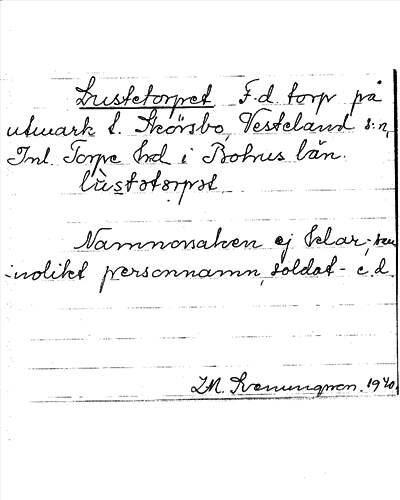 Lustetorpet F.d. torp på
utmark t. Skörsbo, Vesteland s:n,
Inl. Torpe hd i Bohus län.
lùstətɔrpət
Namnorsaken ej klar,
personnamn, soldat- e.d.
1940.